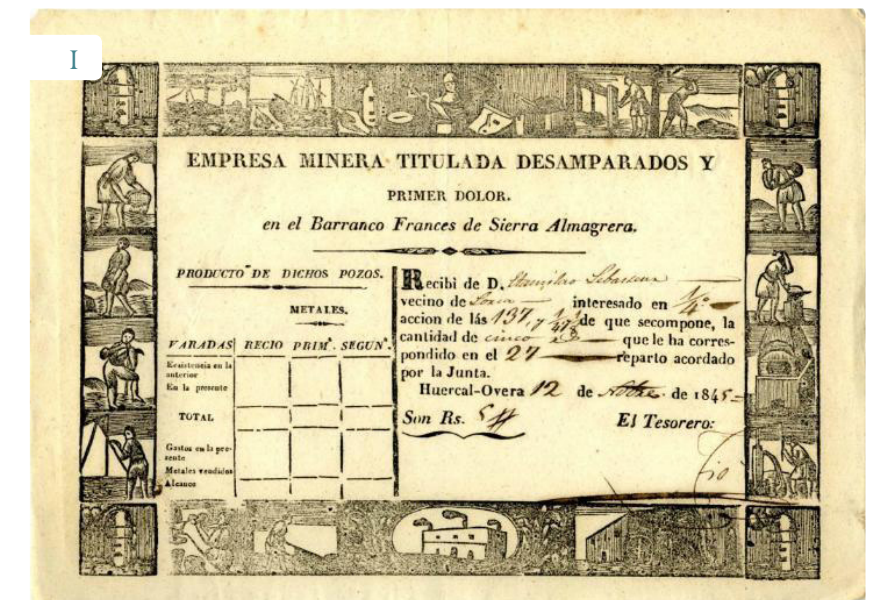 I
EMPRESA MINERA TITULADA DESAMPARADOS Y
PRIMER DOLOR.
en el Barranco Frances de Sierra Almagrera.
PRODUCTO DE DICHOS POZOS.
METALES.
VARADAS RECIO PRIMª. SEGUNª.
Existencia en la
anterior
En la presente
TOTAL
Gastos en la pre-
sente
Metales vendidos
Alcance
Recibì de D.
vecino de Lorca interesado en 1/4º
accion de lás 137, y de que secompone, la
cantidad de cinco que le ha corres-
pondido en el 27 reparto acordado
por la Junta.
Huercal-Overa 12 de de 1845
Son Rs. 5
El Tesorero: